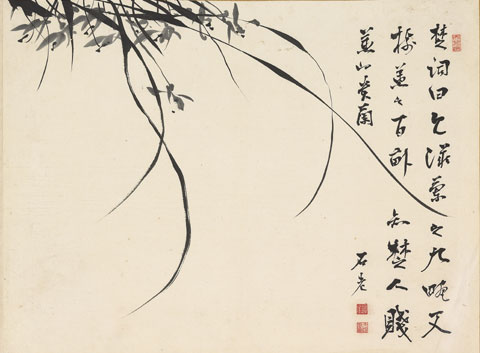 楚詞曰既滋蘭之九畹又
樹蕙之百畝知楚人賤
蕙而貴蘭
石老